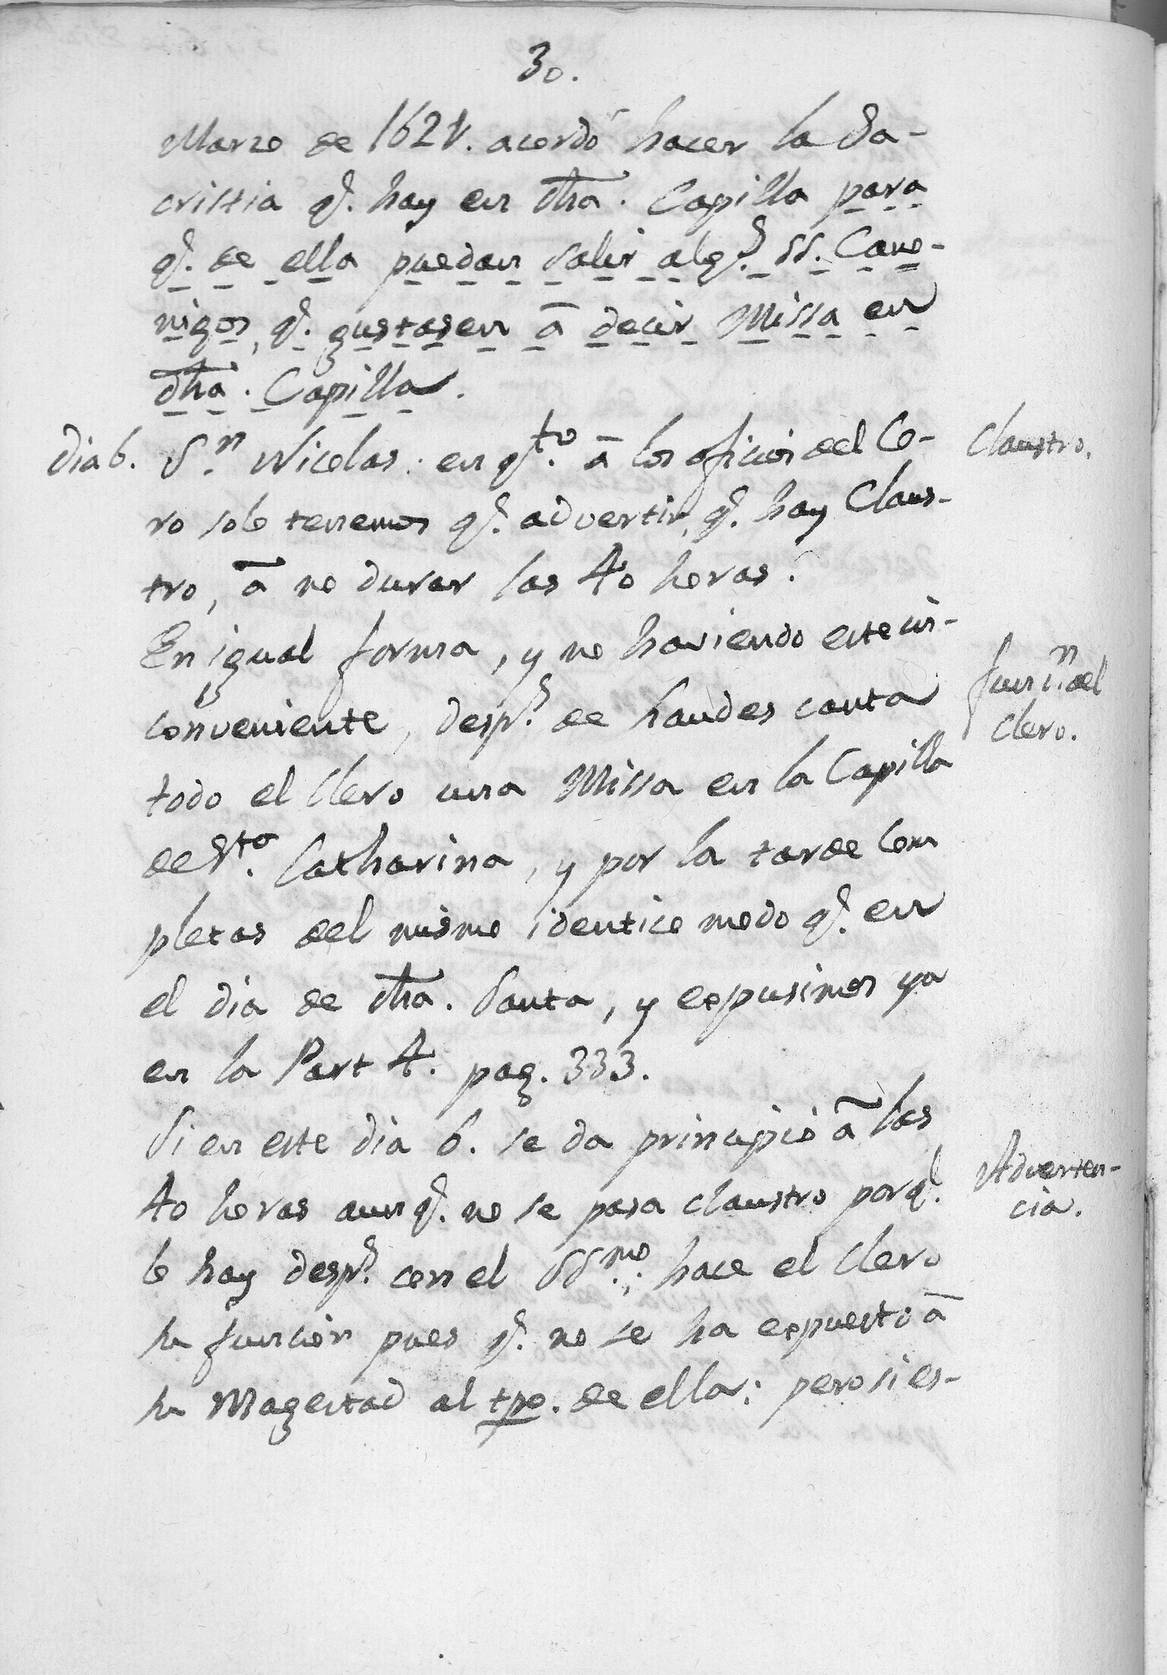 30.
Marzo de 1621. acordó hacer la Sa-
cristia q.e hay en dha. Capilla para
q.e de ella puedan salir alg.s SS. Cano-
nigos, q.e gustasen à decir Missa en
dha. Capilla.
Dia 6. S.n Nicolas: en q.to à los oficios del Co-
Claustro.
ro solo tenemos q.e advertir, q.e hay Claus-
tro, à no durar las 40 horas.
En igual forma, y no haviendo este in-
conveniente, desp.s de Laudes canta
funci.n del
Clero.
todo el Clero una Missa en la Capilla
de S.ta Catharina, y por la tarde Com
pletas del mismo identico modo q.e en
el dia de dha. Santa, y expusimos ya
en la Part 4. pag. 333.
Si en este dia 6. se da principio à las
40 horas aunq.e no se pasa claustro porq.e
Adverten-
cia.
lo hay desp.s con el SS.mo; hace el Clero
su funcion pues q.e no se ha expuesto à
su Magestad al tpo. de ella: pero si es-